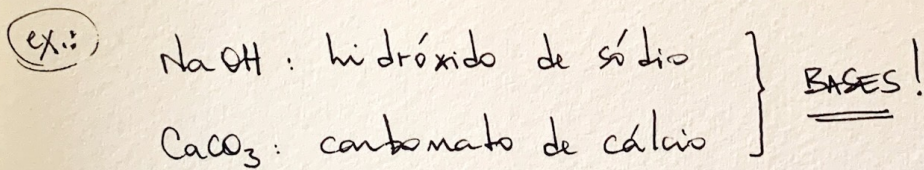 ex.:
NaOH : hidróxido de sódio
CaCO₃ : carbonato de cálcio
BASES!